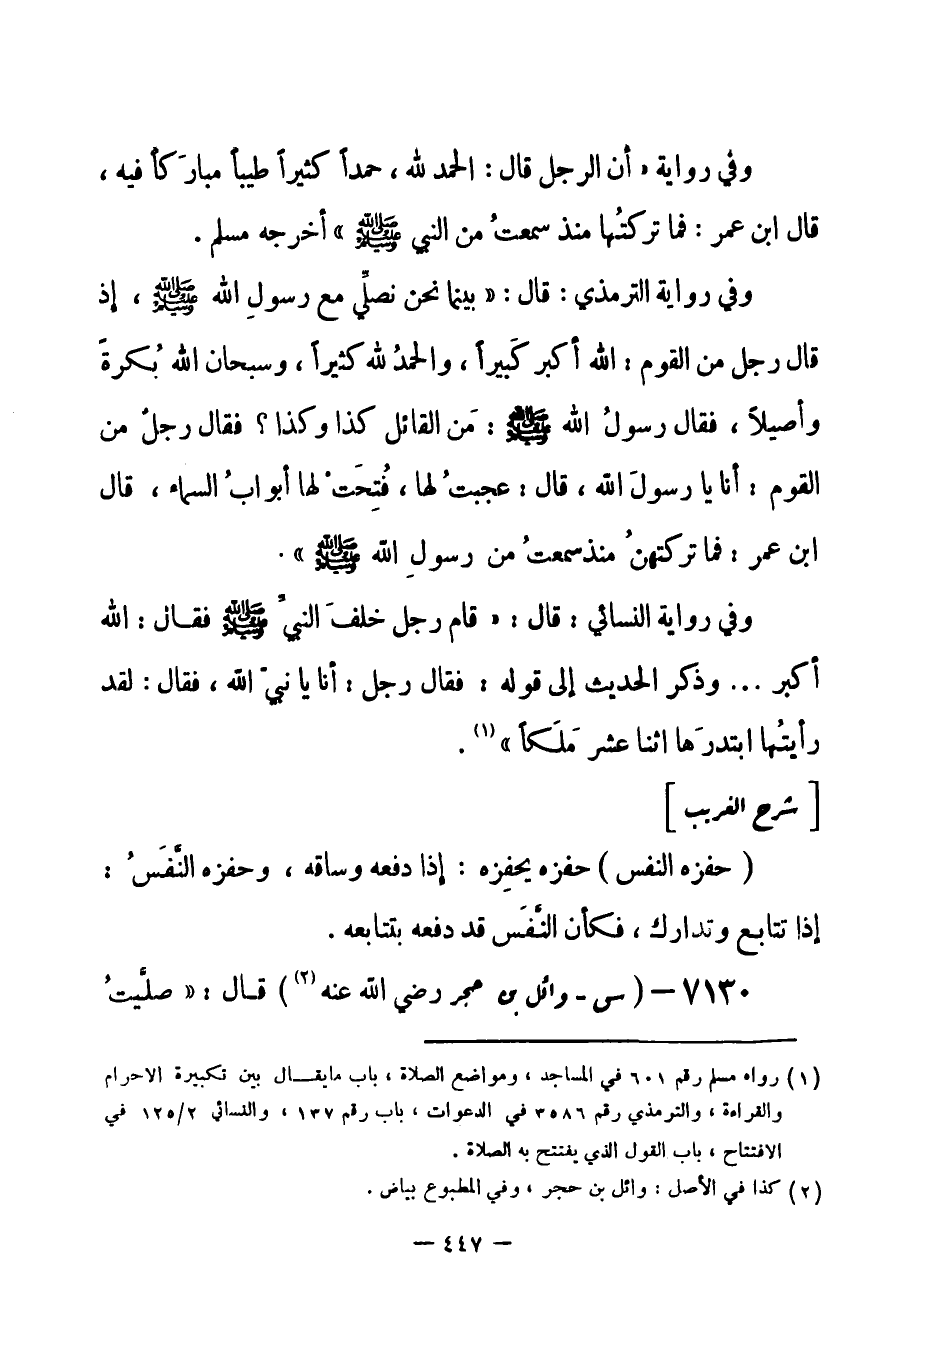 وفي رواية « أن الرجل قال : الحمد لله ، حمداً كثيراً طيباً مبارَكاً فيه ،
قال ابن عمر : فما تركتُها منذ سمعتُ من النبي ﷺ » أخرجه مسلم .
وفي رواية الترمذي : قال : « بينما نحن نصلِّي مع رسولِ الله ﷺ ، إذ
قال رجل من القوم : الله أكبر كَبيراً ، والحمدُ لله كثيراً ، وسبحان الله بُكرةً
وأصيلاً ، فقال رسولُ الله ﷺ : مَن القائل كذا وكذا ؟ فقال رجلٌ من
القوم : أنا يا رسولَ الله ، قال : عجبتُ لها ، فُتِحَتْ لها أبوابُ السماء ، قال
ابن عمر : فما تركتهنُ منذ سمعتُ من رسولِ الله ﷺ » .
وفي رواية النسائي : قال : « قام رجل خلفَ النبيِّ ﷺ فقـال : الله
أكبر ... وذكر الحديث إلى قوله : فقال رجل : أنا يا نبيّ الله ، فقال : لقد
رأيتُها ابتدرَها اثنا عشر مَلَكاً » (١) .
[ شرح الغريب ]
( حفزه النفس ) حفزه يحفِزه : إذا دفعه وساقه ، وحفزه النَّفَسُ :
إذا تتابع وتدارك ، فكأن النَّفَس قد دفعه بتتابعه .
٧١٣٠ – ( سى - وائل بن حجر رضي الله عنه (٢) ) قـال : « صلَّيتُ
(١) رواه مسلم رقم ٦٠١ في المساجد ، ومواضع الصلاة ، باب مايقــال بين تكبيرة الاحرام
والقراءة ، والترمذي رقم ٣٥٨٦ في الدعوات ، باب رقم ١٣٧ ، والنسائي ١٢٥/٢ في
الافتتاح ، باب القول الذي يفتتح به الصلاة .
(٢) كذا في الأصل : وائل بن حجر ، وفي المطبوع بياض .
– ٤٤٧ –